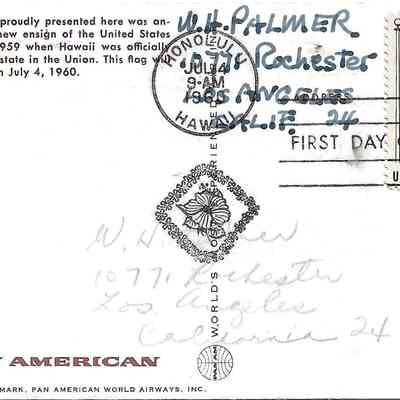 proudly presented here was an-
new ensign of the United States
959 when Hawaii was officially
state in the Union. This flag w
n July 4, 1960.
W. H. PALMER
10771 Rochester
LOS ANGELES
CALIF. 24
HONOLULU
JUL 4
9-AM
1960
HAWAII
FIRST DAY O
U.
W. H. Palmer
10771 Rochester
Los Angeles
California 24
WORLD'S MOST EXPERIENCED
AMERICAN
MARK, PAN AMERICAN WORLD AIRWAYS, INC.